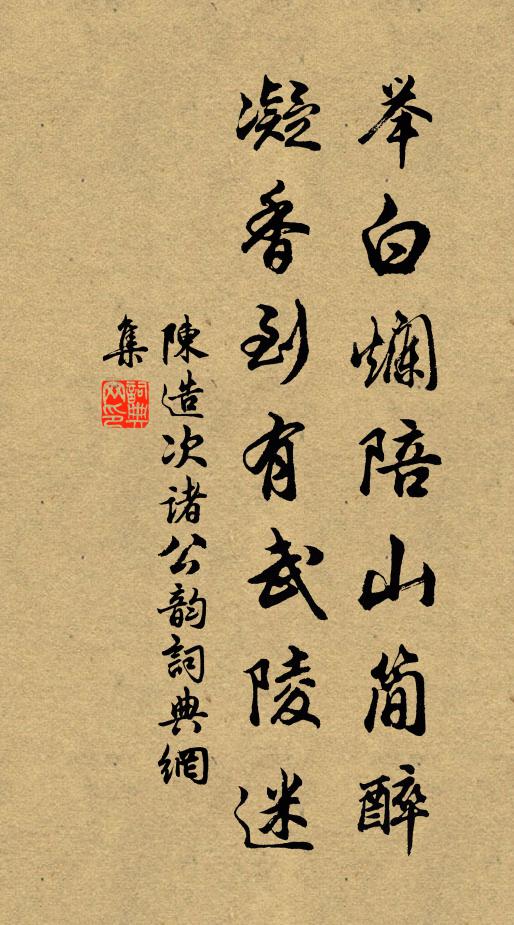 举白爛陪山简醉
凝香到有武陵迷
陳造次诸公韵詞典網
集
詞典网印